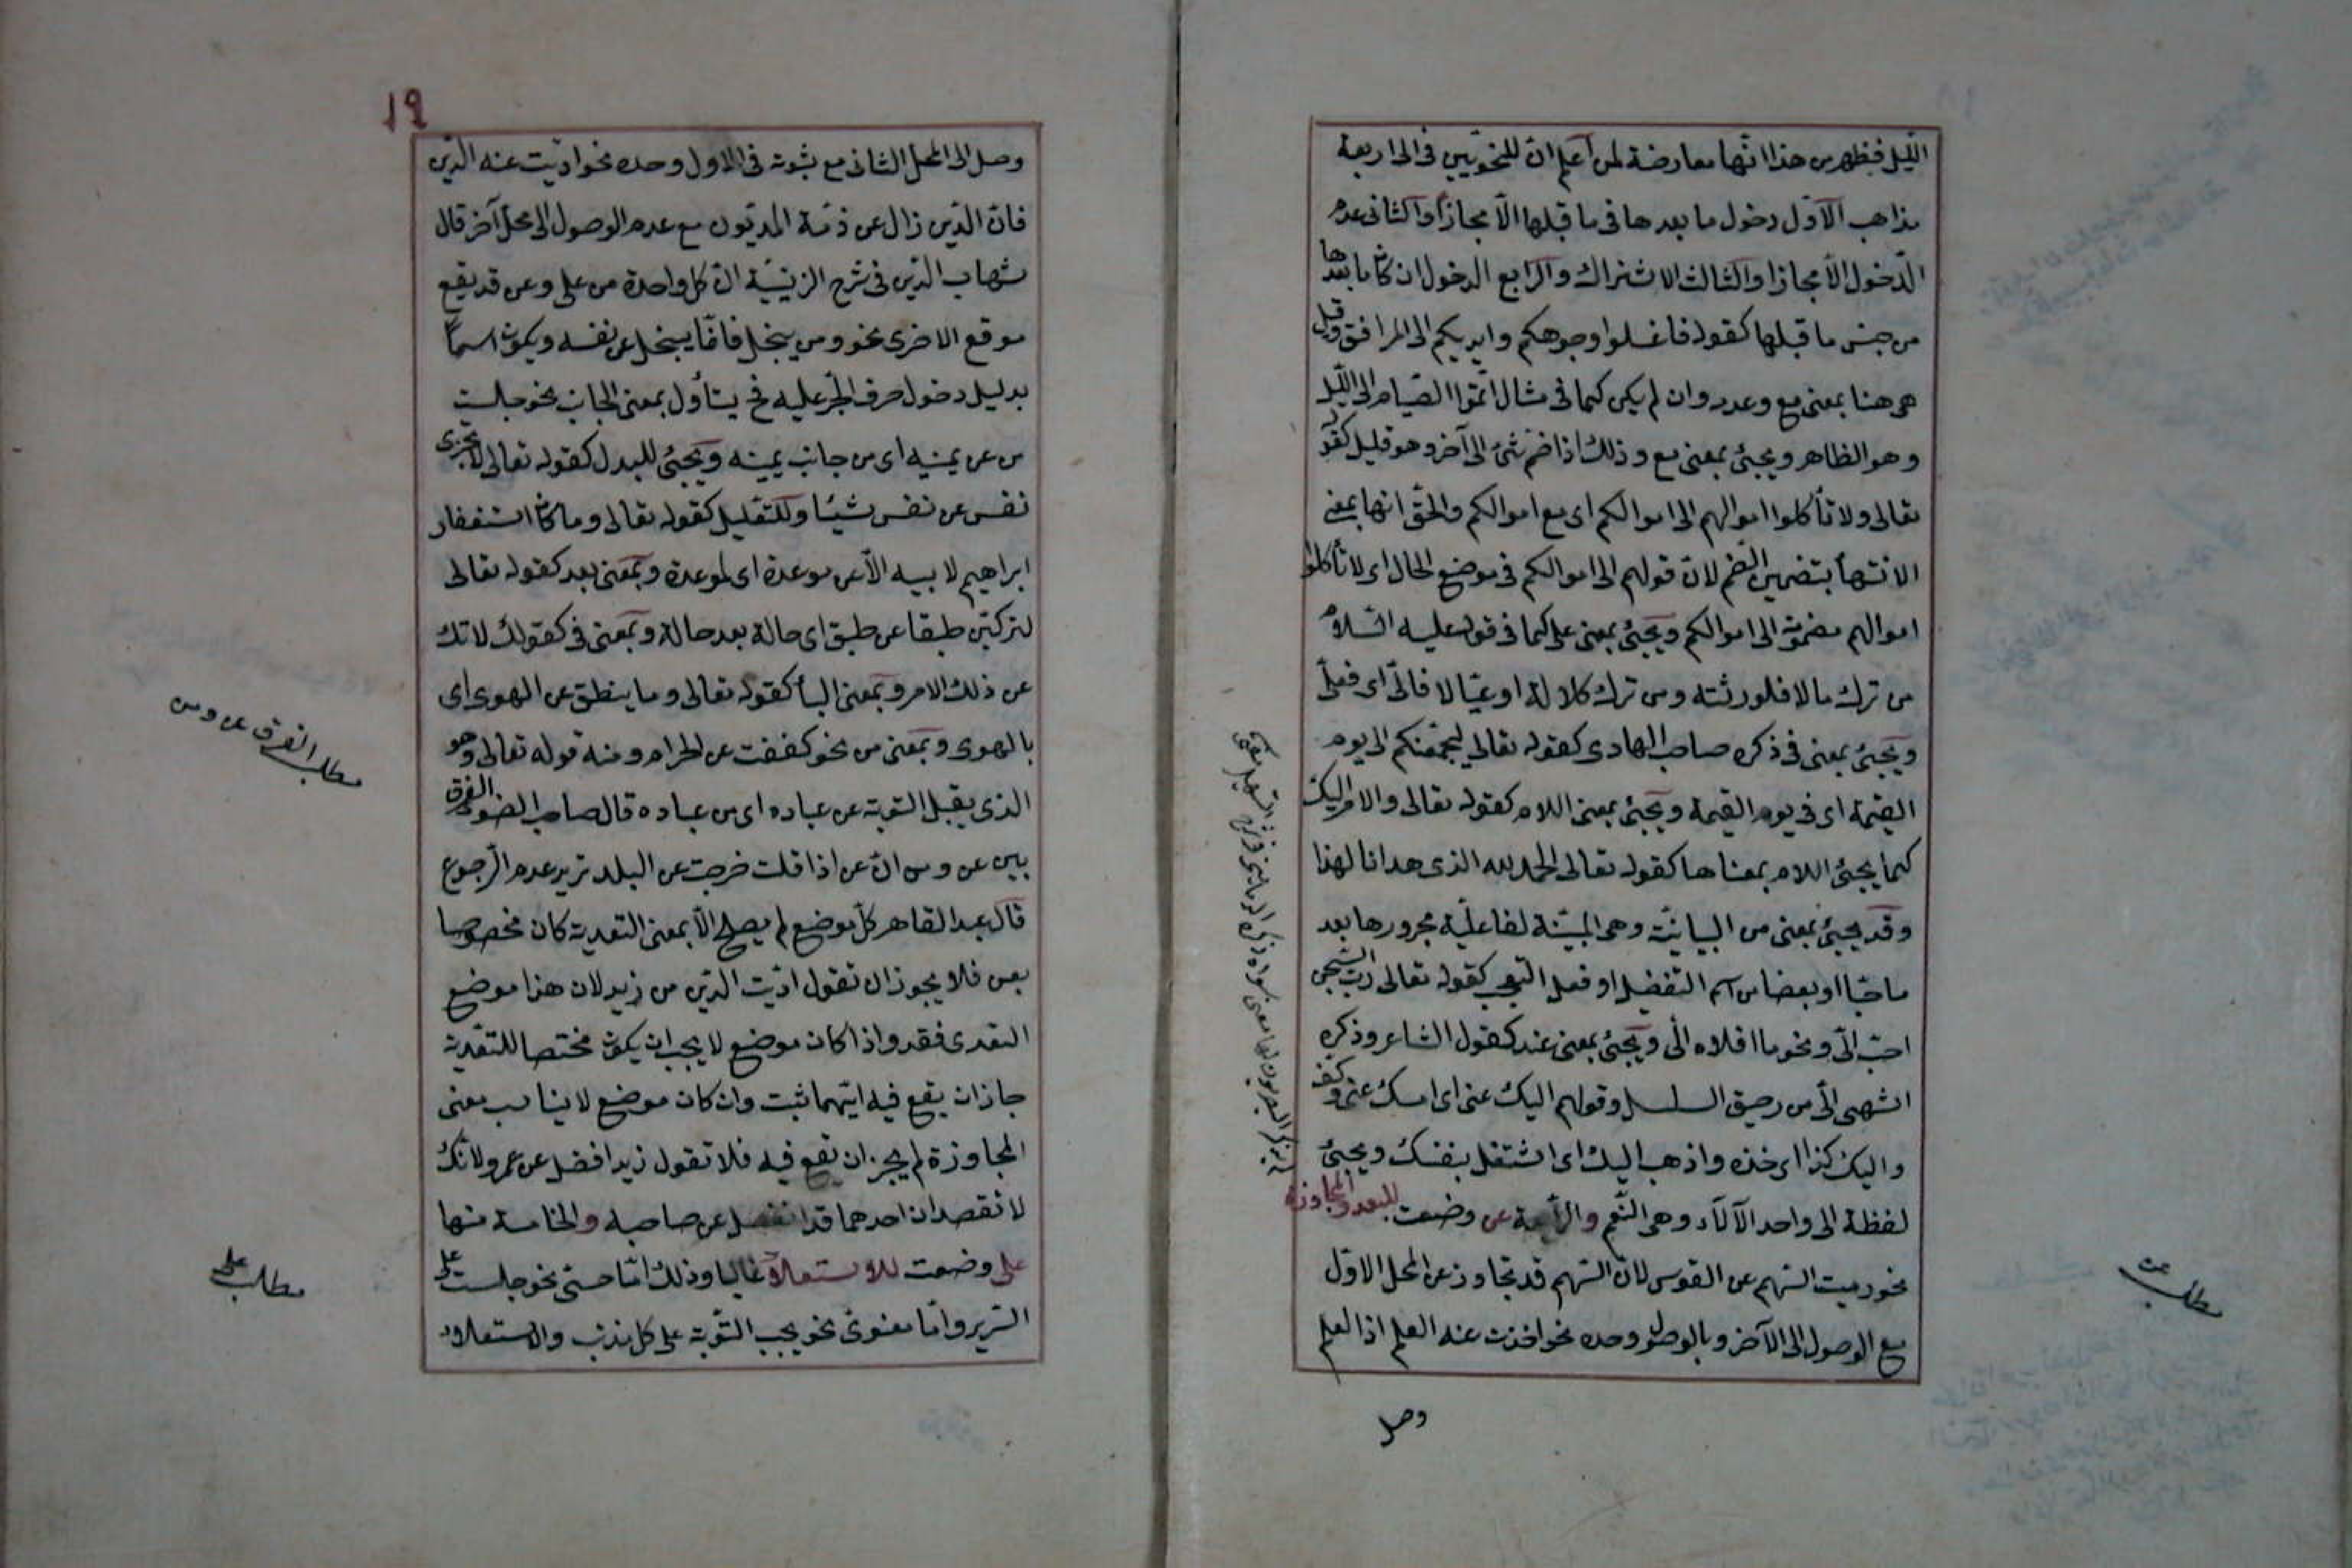 الليل فظهر من هذا انها معارضة لمن اعلم ان للنحويين فى الى اربعة
مذاهب الاول دخول ما بعدها فى ما قبلها الا مجازا والثانى عدم
الدخول الا مجازا والثالث الاشتراك والرابع الدخول ان كان ما بعدها
من جنس ما قبلها كقوله فاغسلوا وجوهكم وايديكم الى المرافق وقيل
هى هنا بمعنى مع وعدمه وان لم يكن كما فى مثال اتموا الصيام الى الليل
وهو الظاهر ويجئ بمعنى مع وذلك اذا ضم شئ الى آخر وهو قليل كقوله
تعالى ولا تأكلوا اموالهم الى اموالكم اى مع اموالكم والحق انها بمعنى
الانتهاء بتضمين الضم لان قولهم الى اموالكم فى موضع الحال اى لا تأكلوا
اموالهم مضمومة الى اموالكم ويجئ بمعنى على كما فى قوله عليه السلام
من ترك مالا فلورثته ومن ترك كلالة او عيالا فالى اى فعلى
ويجئ بمعنى فى ذكره صاحب الهادى كقوله تعالى ليجمعنكم الى يوم
القيمة اى فى يوم القيمة ويجئ بمعنى اللام كقوله تعالى والامر اليك
كما يجئ اللام بمعناها كقوله تعالى الحمد لله الذى هدانا لهذا
وقد يجئ بمعنى من البيانية وهى المبينة لفاعلية مجرورها بعد
ما حبا او بعضا من اسم التفضيل او فعل التعجب كقوله تعالى رب السجن
احب الى ونحو ما اقلاه الى ويجئ بمعنى عند كقول الشاعر وذكره
اشهى الى من رحيق السلسل وقولهم اليك عنى اى امسك عنى وكف
واليك كذا اى خذه واذهب اليك اى اشتغل بنفسك ويجئ
لفظة الى واحد الآلاء وهى النعم والرابعة عن وضعت للبعد والمجاوزة
نحو رميت السهم عن القوس لان السهم قد تجاوز عن المحل الاول
مع الوصول الى الآخر وبالوصول وحده نحو اخذت عنه العلم اذ العلم
وصل
مطلب عن
١٩
وصل الى المحل الثانى مع ثبوته فى الاول وحده نحو اديت عنه الدين
فان الدين زال عن ذمة المديون مع عدم الوصول الى محل آخر قال
شهاب الدين فى شرح الزينية ان كل واحدة من على وعن قد يقع
موقع الاخرى نحو ومن يبخل فانما يبخل عن نفسه ويكون اسما
بدليل دخول حرف الجر عليه فح يتأول بمعنى الجانب نحو جلست
من عن يمينه اى من جانب يمينه ويجئ للبدل كقوله تعالى لا تجزى
نفس عن نفس شيئا وللتعليل كقوله تعالى وما كان استغفار
ابراهيم لابيه الا عن موعدة اى لموعدة وبمعنى بعد كقوله تعالى
لتركبن طبقا عن طبق اى حالة بعد حالة وبمعنى فى كقولك لاتك
عن ذلك الامر وبمعنى الباء كقوله تعالى وما ينطق عن الهوى اى
بالهوى وبمعنى من نحو كففت عن الحرام ومنه قوله تعالى وهو
الذى يقبل التوبة عن عباده اى من عباده قال صاحب الضوء الفرق
بين عن ومن ان عن اذا قلت خرجت عن البلد تريد عدم الرجوع
قال عبد القاهر كل موضع لم يصلح الا بمعنى التعدية كان مخصوصا
بعن فلا يجوز ان تقول اديت الدين من زيد لان هذا موضع
التعدى فقد واذا كان موضع لا يجب ان يكون مختصا للتعدية
جاز ان يقع فيه ايتهما ثبت وان كان موضع لا يناسب معنى
المجاوزة لم يجز ان تقع فيه فلا تقول زيد افضل عن عمرو لانك
لا تقصد ان احدهما قد انفصل عن صاحبه والخامسة منها
على وضعت للاستعلاء غالبا وذلك اما حسى نحو جلست على
السرير واما معنوى نحو يجب التوبة على كل مذنب والاستعلاء
مطلب الفرق عن ومن
مطلب على